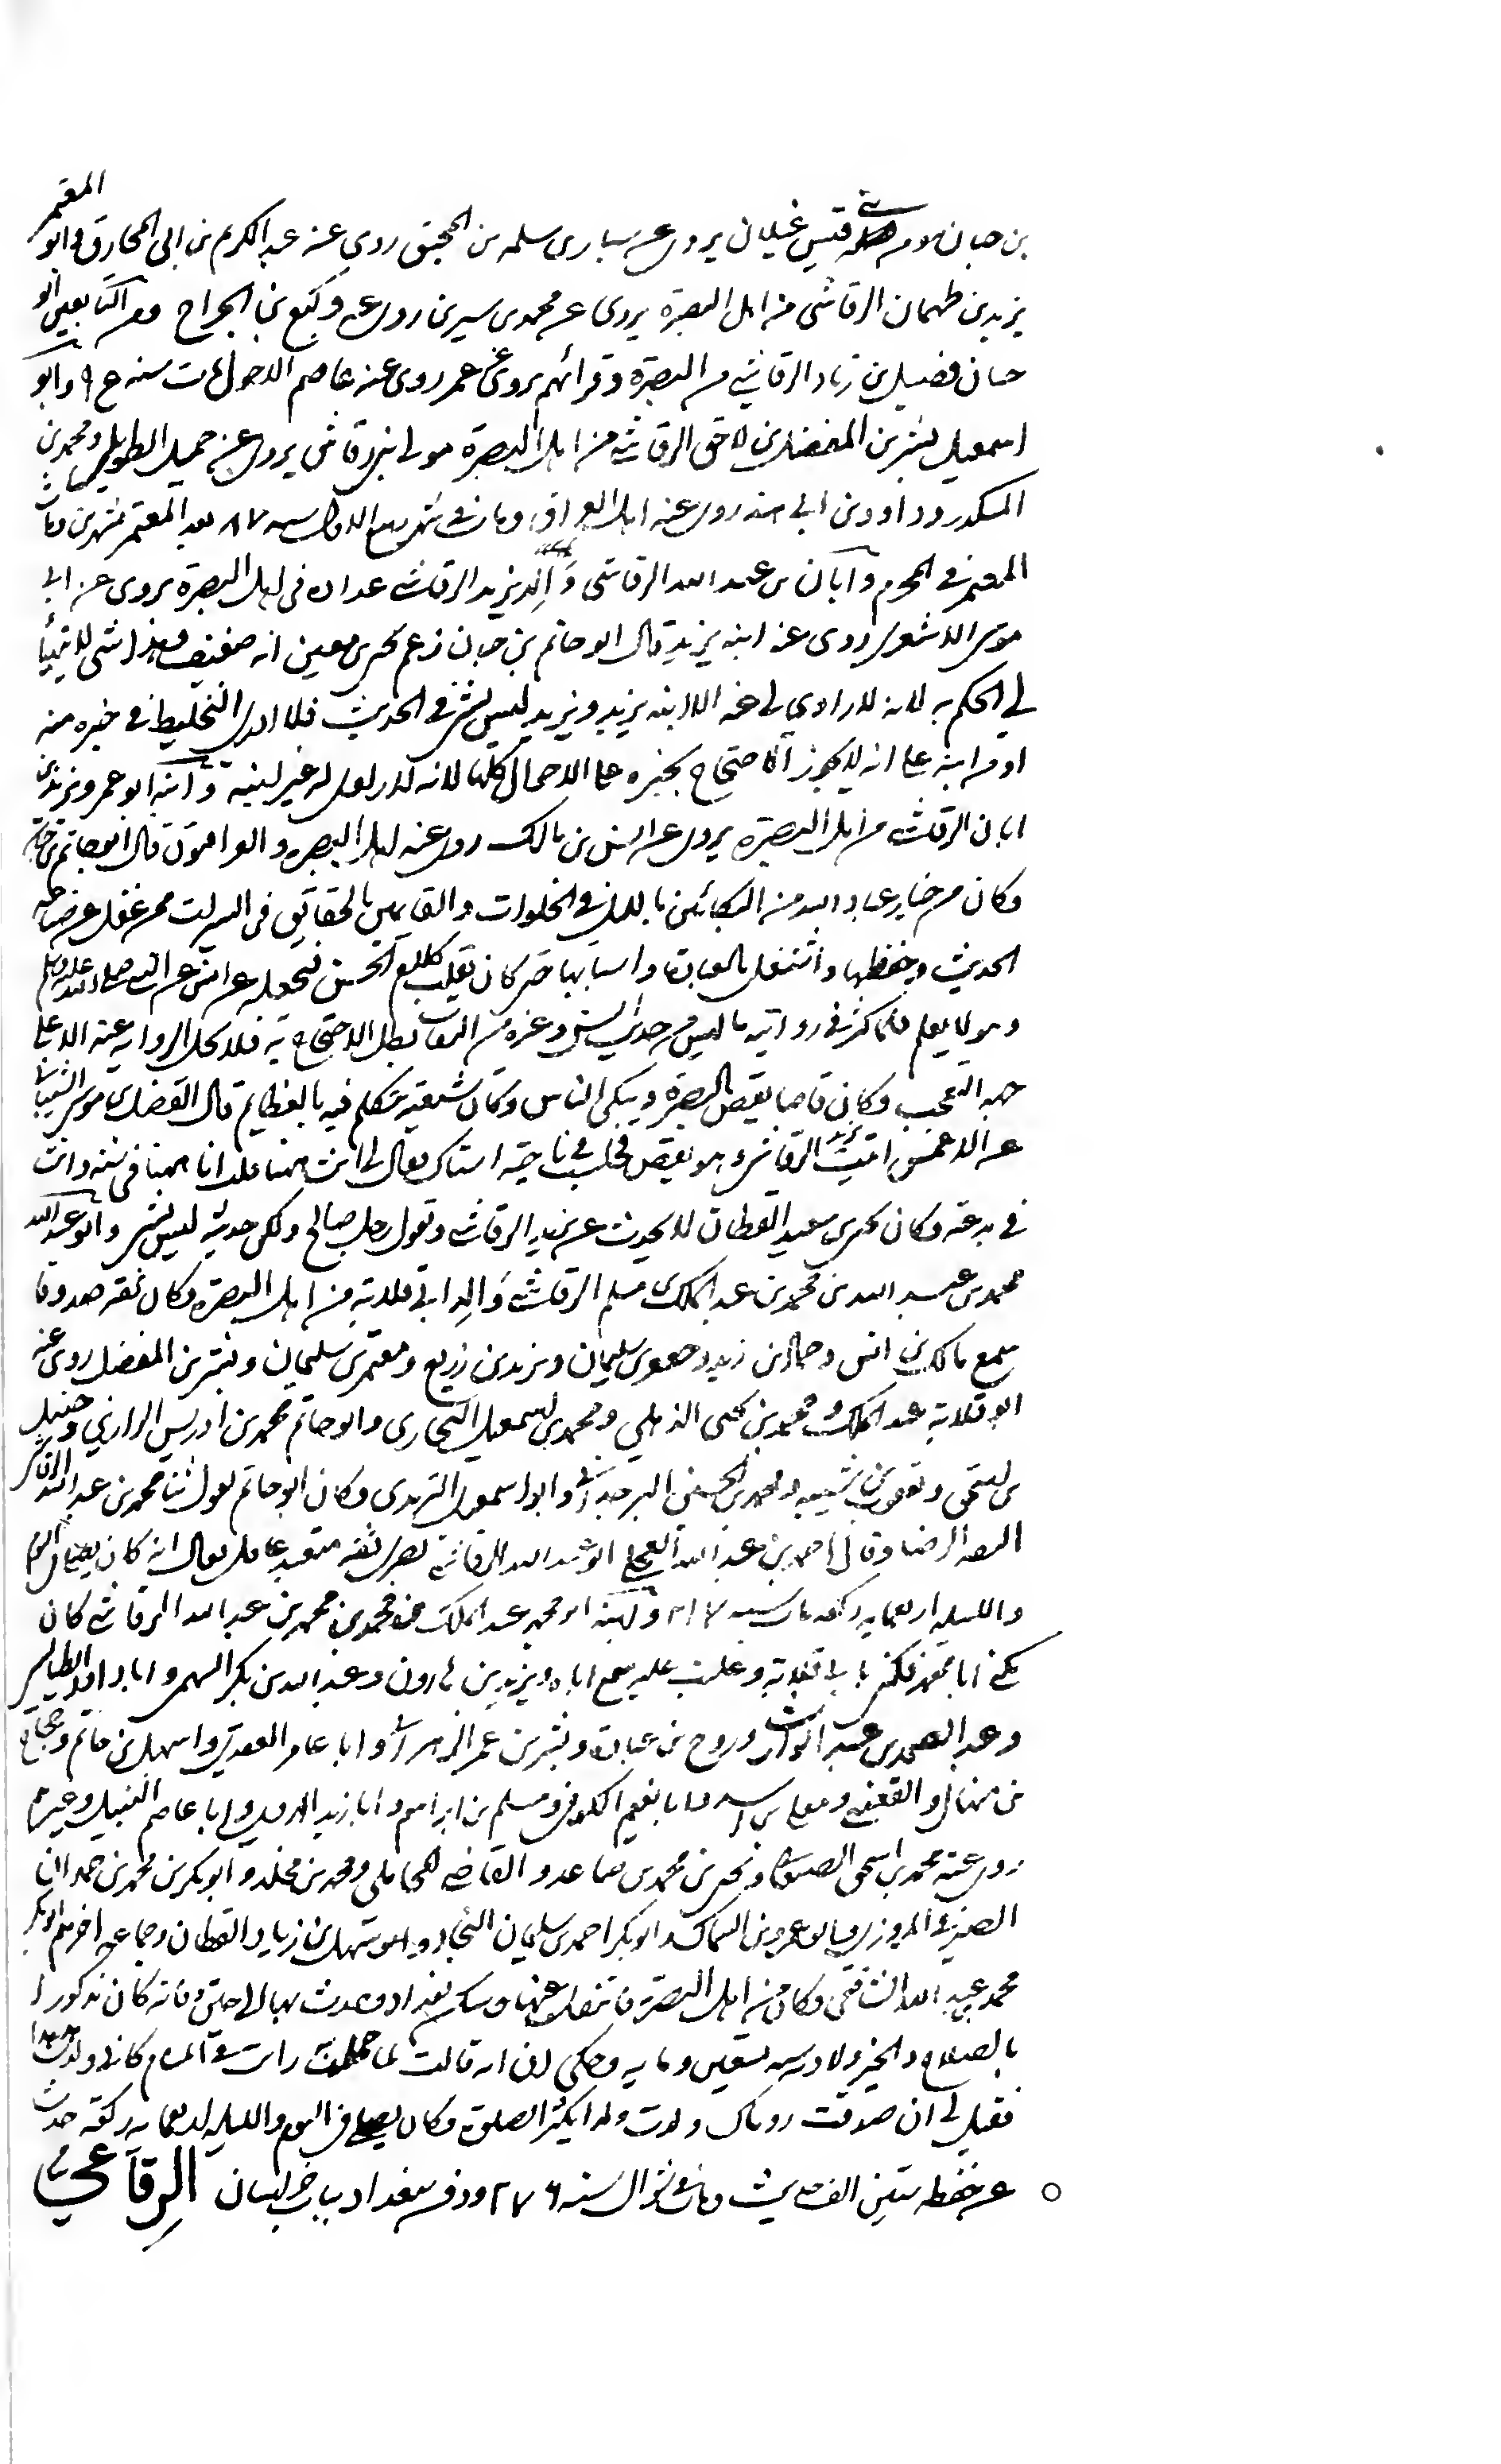 المعتمر
بن حبان من قيس غيلان يروى عن سلمه بن المحبق روى عنه عبد الكريم بن ابى المخارق وابو
يزيد بن طهمان الرقاشى من اهل البصرة يروى عن محمد بن سيرين روى عنه وكيع بن الجراح ومن التابعين ابو
حسان فضيل بن زياد الرقاشي من البصرة وقرائهم يروى عن عمر روى عنه عاصم الاحول مات سنه وابو
اسمعيل بشر بن المفضل بن لاحق الرقاشي من اهل البصرة مولى بنى رقاش يروى عن حميد الطويل ومحمد بن
المنكدر وداود بن ابي هند روى عنه اهل العراق ومات في شهر ربيع الاول سنه ١٨٧ بعد المعتمر بشهرين ومات
المعتمر في المحرم وابان بن عبد الله الرقاشى والد يزيد الرقاشي عداده فى اهل البصرة يروى عن ابي
موسى الاشعرى روى عنه ابنه يزيد قال ابو حاتم بن حبان زعم يحيى بن معين انه ضعيف وهذا شى لا يتهيأ
لي الحكم به لانه لا راوي له عنه الا ابنه يزيد ويزيد ليس بشئ في الحديث فلا ادرى التخليط في خبره منه
او من ابنه على انه لا يجوز الاحتجاج بخبره على الاحوال كلها لانه لا راوى له غير ابنه وابنه ابو عمرو يزيد بن
ابان الرقاشي من اهل البصرة يروى عن انس بن مالك روى عنه اهل البصرة والعراقيون قال ابو حاتم بن حبان
وكان من خيار عباد الله من البكائين بالليل في الخلوات والقائمين بالحقائق فى السبرات ممن غفل عن صناعه
الحديث وحفظها واشتغل بالعبادة واسبابها حتى كان يقلب كلام الحسن فيجعله عن انس عن النبي صلى الله عليه وسلم
وهو لا يعلم فلما كثر في روايته ما ليس من حديث انس وغيره من الثقات بطل الاحتجاج به فلا تحل الرواية عنه الا على
جهه التعجب وكان قاصا يقص بالبصرة ويبكى الناس وكان شعبة يتكلم فيه بالعظايم قال الفضل بن موسى الشيبانى
عن الاعمش اتيت يزيد الرقاشى وهو يقص فجلست في ناحية استاك فقال لى انت ههنا قلت انا ههنا فى سنة وانت
في بدعة وكان يحيى بن سعيد القطان لا يحدث عن يزيد الرقاشي ويقول رجل صالح ولكن حديثه ليس بشئ وابو عبد الله
محمد بن عبد الله بن محمد بن عبد الملك بن مسلم الرقاشي والد ابي قلابة من اهل البصرة وكان ثقة صدوقا
سمع مالك بن انس وحماد بن زيد وجعفر بن سليمان ويزيد بن زريع ومعتمر بن سليمان وبشر بن المفضل روى عنه
ابو قلابة عبد الملك ومحمد بن يحيى الذهلي ومحمد بن اسمعيل البخارى وابو حاتم محمد بن ادريس الرازي وحنبل
بن اسحق ويعقوب بن شيبه ومحمد بن الحسين البرجلاني وابو اسمعيل الترمذى وكان ابو حاتم يقول ثنا محمد بن عبد الله الرقاشى
الثقة الرضا وقال احمد بن عبد الله العجلي ابو عبد الله الرقاشي بصرى ثقة متعبد عاقل يقال انه كان يصلى فى اليوم
والليله اربعمايه ركعه مات سنه ٢١٧ وابنه ابو محمد عبد الملك بن محمد بن عبد الله الرقاشي كان
يكنى ابا محمد فكنى بابى قلابة وغلبت عليه سمع اباه ويزيد بن هارون وعبد الله بن بكر السهمى وابا داود الطيالسي
وعبد الصمد بن عبد الوارث وروح بن عبادة وبشر بن عمر الزهرانى وابا عامر العقدى واسهل بن حاتم وحجاج
بن منهال والقعنبي ومعلى بن اسد وابا نعيم الكوفى ومسلم بن ابراهيم وابا زيد الهروى وابا عاصم النبيل وغيرهم
روى عنه محمد بن اسحق الصغانى ويحيى بن محمد بن صاعد والقاضي المحاملى ومحمد بن مخلد وابو بكر بن محمد بن حمدان
الصيرفى المروزى وابو عمرو بن السماك وابو بكر احمد بن سليمان النجاد وابو سهل بن زياد القطان وجماعه اخرهم ابو بكر
محمد بن عبد الله الشافعى وكان من اهل البصرة فانتقل عنها وسكن بغداد وحدث بها الى حين وفاته كان مذكورا
بالصلاح والخير ولادته سنه تسعين ومايه وحكى ان امه قالت لما حملت به رات في المنام كاني ولدت هدهدا
فقيل لى ان صدقت روياك ولدت ولدا يكثر الصلوة وكان يصلي فى اليوم والليله اربعمايه ركعه حدث
عن حفظه ستين الف حديث ومات في شوال سنه ٢٧٦ ودفن ببغداد بباب خراسان الرقاعي